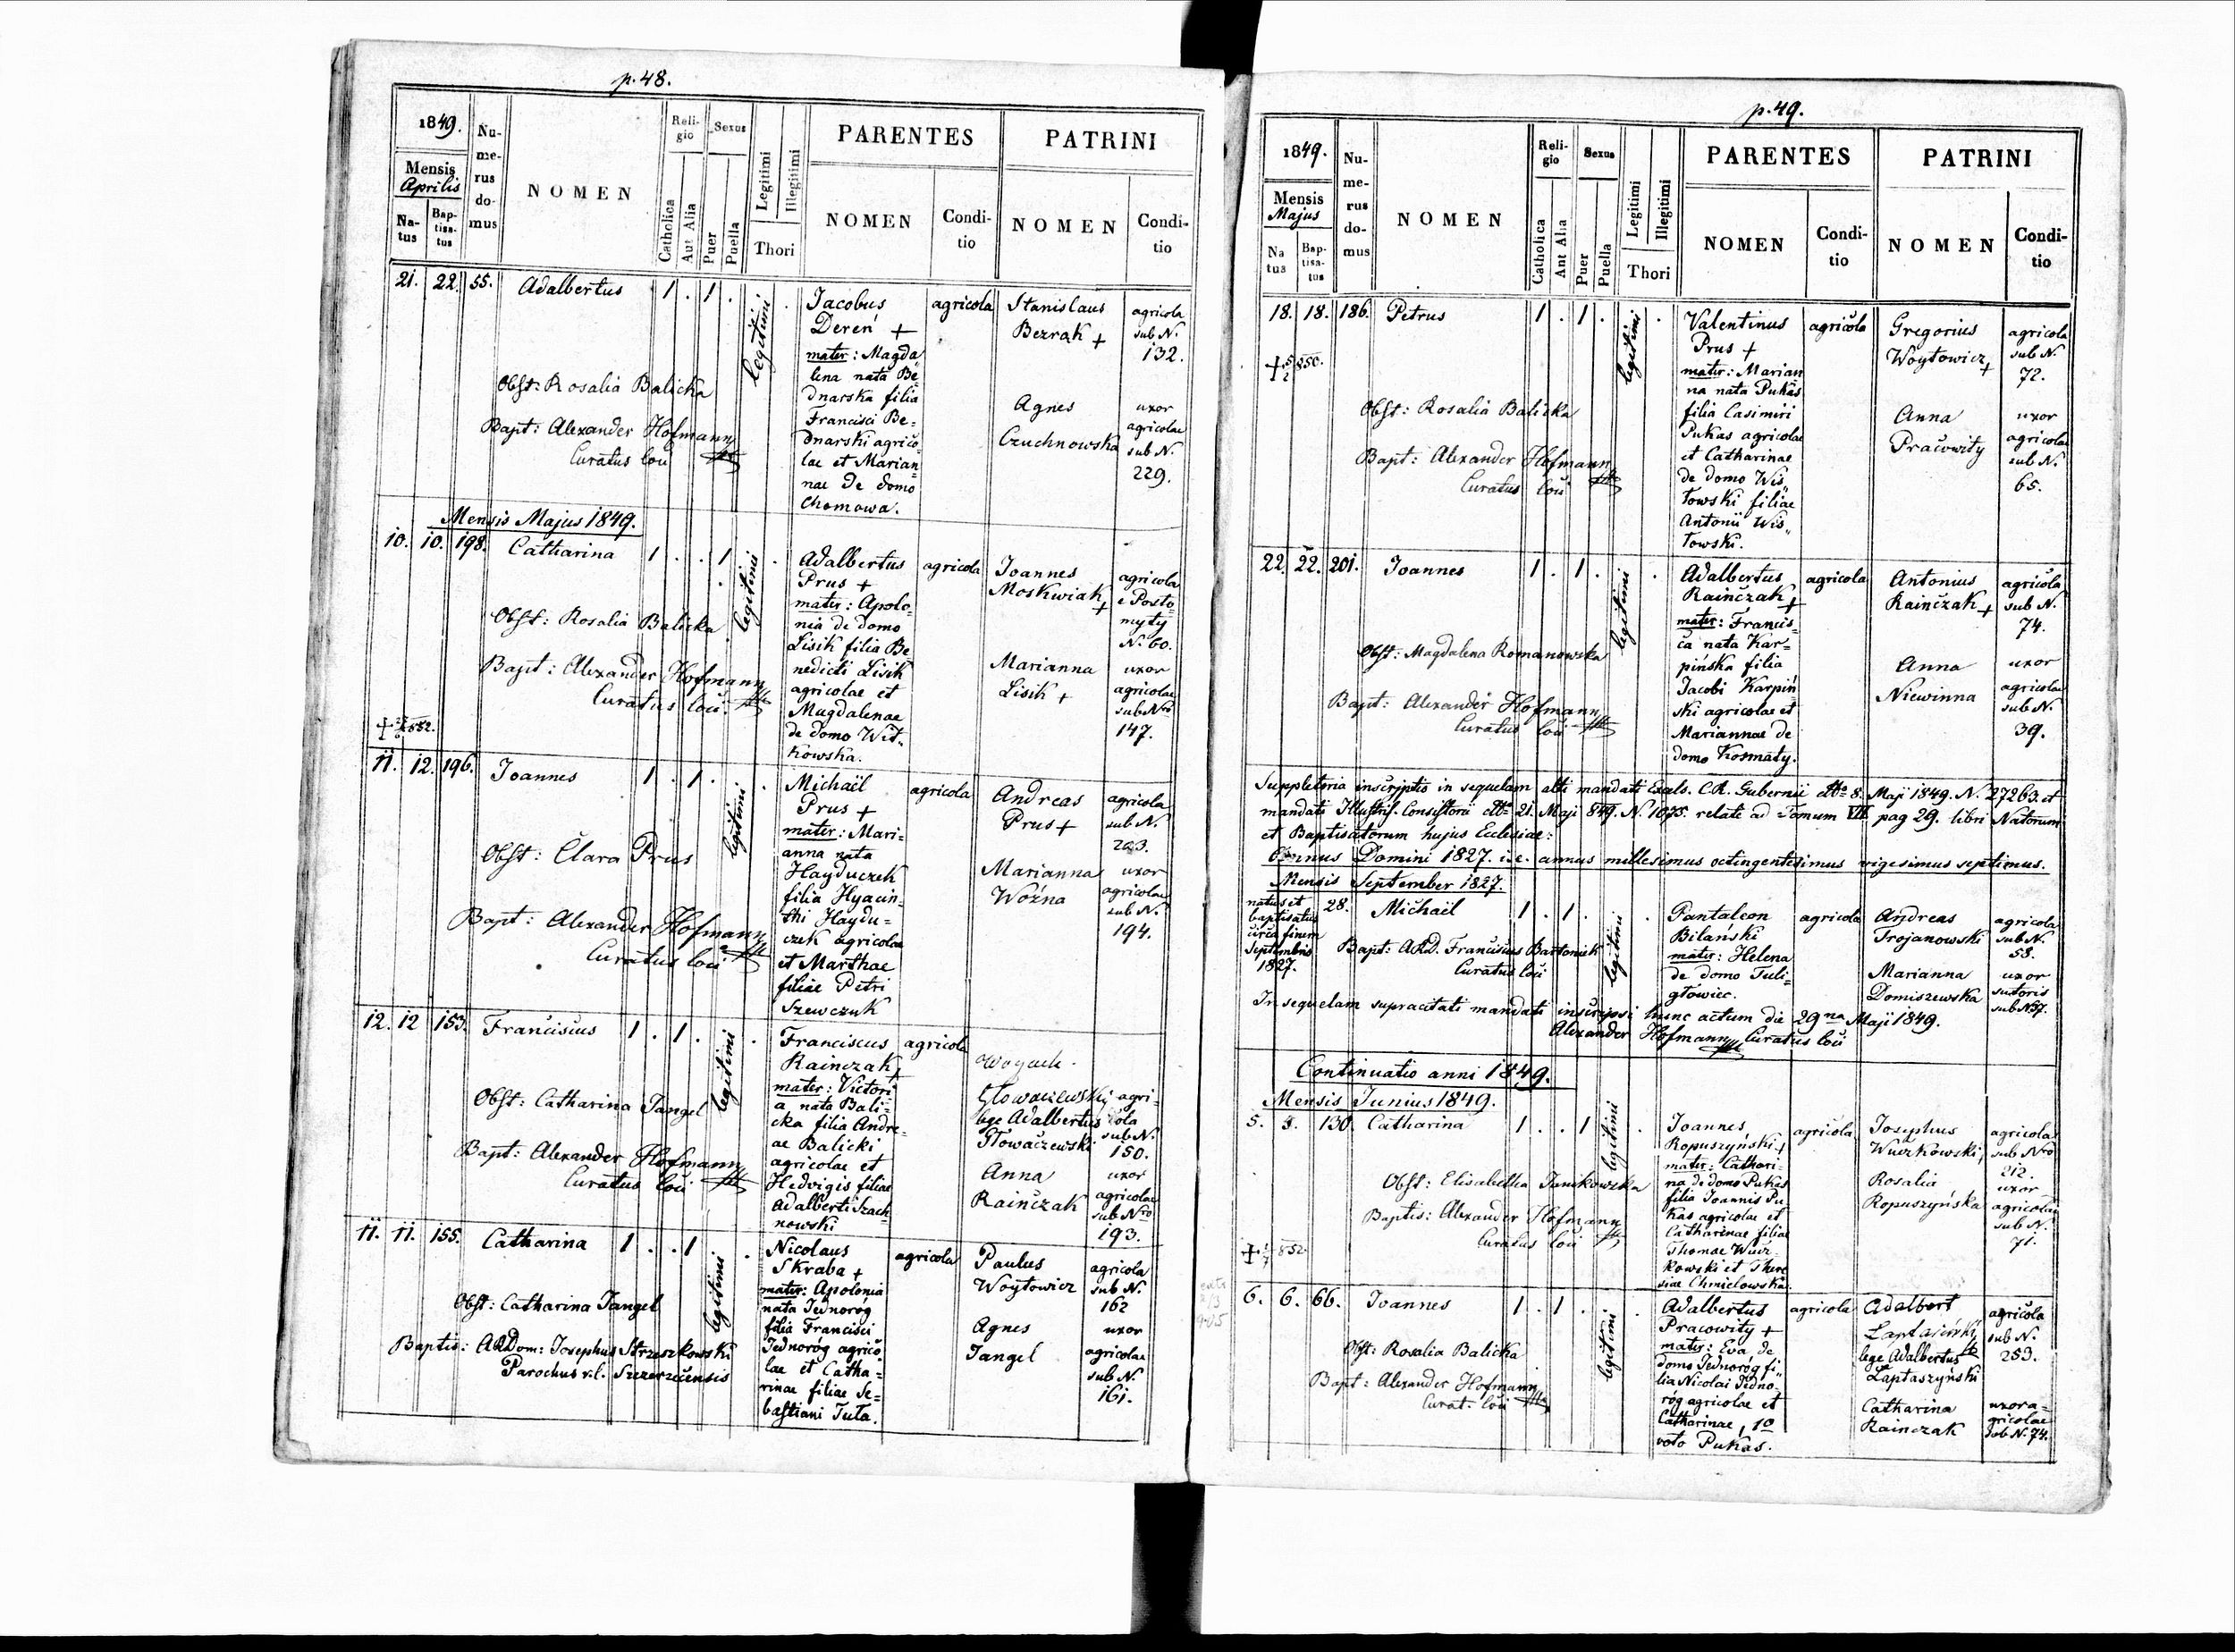 p. 48.
1849.
Mensis
Aprilis
Na-
tus
Bap-
tisa-
tus
Nu-
me-
rus
do-
mus
NOMEN
Reli-
gio
Catholica
Aut Alia
Sexus
Puer
Puella
Legitimi
Illegitimi
Thori
PARENTES
NOMEN
Condi-
tio
PATRINI
NOMEN
Condi-
tio
21. 22. 55. Adalbertus 1 . 1 .
legitimi
Obst: Rosalia Balicka
Bapt: Alexander Hofmann
Curatus loci
Jacobus
Dereń +
mater: Magda
lena nata Be
dnarska filia
Francisci Be=
dnarski agrico
lae et Marian=
nae de domo
Chomowa.
agricola
Stanislaus
Bezrak +
agricola
sub N.
132.
Agnes
Czuchnowska
uxor
agricolae
sub N.
229.
Mensis Majus 1849.
10. 10. 198. Catharina 1 . . 1
legitimi
Obst: Rosalia Balicka
Bapt: Alexander Hofmann
Curatus loci
852.
Adalbertus
Prus +
mater: Apolo=
nia de domo
Lisik filia Be
nedicti Lisik
agricolae et
Magdalenae
de domo Wit=
kowska.
agricola
Joannes
Moskwiak +
agricola
e Posto=
myty
N. 60.
Marianna
Lisik +
uxor
agricolae
sub Nro
147.
11. 12. 196. Joannes 1 . 1 .
legitimi
Obst: Clara Prus
Bapt: Alexander Hofmann
Curatus loci
Michaël
Prus +
mater: Mari=
anna nata
Hayduczek
filia Hyacin=
thi Haydu=
czek agricolae
et Marthae
filiae Petri
Szewczuk
agricola
Andreas
Prus +
agricola
sub N.
203.
Marianna
Woźna
uxor
agricolae
sub N.
194.
12. 12 153. Franciscus 1 . 1 .
legitimi
Obst: Catharina Jangel
Bapt: Alexander Hofmann
Curatus loci
Franciscus
Rainczak +
mater: Victori
a nata Bali=
cka filia Andre=
ae Balicki
agricolae et
Hedvigis filiae
Adalberti Szach
nowski
agricola
Głowaczewski
lege Adalbertus
Głowaczewski
agri=
cola
sub N.
150.
Anna
Rainczak
uxor
agricolae
sub Nro
193.
11. 11. 155. Catharina 1 . . 1
legitimi
Obst: Catharina Jangel
Baptis: ARDom: Josephus Strzeszkowski
Parochus r.l. Szczerzecensis
Nicolaus
Skraba +
mater: Apolonia
nata Jednoróg
filia Francisci
Jednoróg agrico
lae et Catha=
rinae filiae Se=
bastiani Tuta.
agricola
Paulus
Woytowicz
agricola
sub N.
162
Agnes
Jangel
uxor
agricolae
sub N.
161.
p. 49.
1849.
Mensis
Majus
Na
tus
Bap-
tisa-
tus
Nu-
me-
rus
do-
mus
NOMEN
Reli-
gio
Catholica
Ant Alia
Sexus
Puer
Puella
Legitimi
Illegitimi
Thori
PARENTES
NOMEN
Condi-
tio
PATRINI
NOMEN
Condi-
tio
18. 18. 186. Petrus 1 . 1 .
850.
legitimi
Obst: Rosalia Balicka
Bapt: Alexander Hofmann
Curatus loci
Valentinus
Prus +
mater: Marian
na nata Pukas
filia Casimiri
Pukas agricolae
et Catharinae
de domo Wis=
towski filiae
Antonii Wis=
towski.
agricola
Gregorius
Woytowicz +
agricola
sub N.
72.
Anna
Pracowity
uxor
agricolae
sub N.
65.
22. 22. 201. Joannes 1 . 1 .
legitimi
Obst: Magdalena Romanowska
Bapt: Alexander Hofmann
Curatus loci
Adalbertus
Rainczak +
mater: Francis=
ca nata Kar=
pińska filia
Jacobi Karpiń
ski agricolae et
Mariannae de
domo Kosmaty.
agricola
Antonius
Rainczak +
agricola
sub N.
74.
Anna
Niewinna
uxor
agricolae
sub N.
39.
Suppletoria inscriptio in sequelam alti mandati Excels. C.R. Gubernii ddto 8. Maji 1849. N. 27263. et
mandati Illustris. Consistorii ddto 21. Maji 849. N. 1075. relate ad Tomum VII. pag 29. libri Natorum
et Baptisatorum hujus Ecclesiae:
Annus Domini 1827. i.e. annus millesimus octingentesimus vigesimus septimus.
Mensis September 1827.
natus et
baptisatus
circa finem
Septembris
1827.
28. Michaël 1 . 1 .
legitimi
Bapt: ARD. Franciscus Bartonik
Curatus loci
Pantaleon
Bilański
mater: Helena
de domo Tuli=
głowiec.
agricola
Andreas
Trojanowski
agricola
sub N.
58.
Marianna
Domiszewska
uxor
sutoris
sub N 37.
In sequelam supracitati mandati inscripsi hunc actum die 29na Maji 1849.
Alexander Hofmann Curatus loci
Continuatio anni 1849.
Mensis Junius 1849.
5. 5. 130. Catharina 1 . . 1
852
legitimi
Obst: Elisabetha Janikowska
Baptis: Alexander Hofmann
Curatus loci
Joannes
Ropuszyński +
mater: Cathari=
na de domo Pukas
filia Joannis Pu
kas agricolae et
Catharinae filiae
Thomae Wucz=
kowski et There
siae Chmielowska.
agricola
Josephus
Wuczkowski
agricola
sub Nro
212.
Rosalia
Ropuszyńska
uxor
agricolae
sub N.
71.
6. 6. 66. Joannes 1 . 1 .
legitimi
Obst: Rosalia Balicka
Bapt: Alexander Hofmann
Curat. loci
Adalbertus
Pracowity +
mater: Eva de
domo Jednoróg fi=
lia Nicolai Jedno=
róg agricolae et
Catharinae, 1o
voto Pukas.
agricola
Adalbert
lege Adalbertus
Łaptaszyński
agricola
sub N.
253.
Catharina
Rainczak
uxor a=
gricolae
sub N. 74.